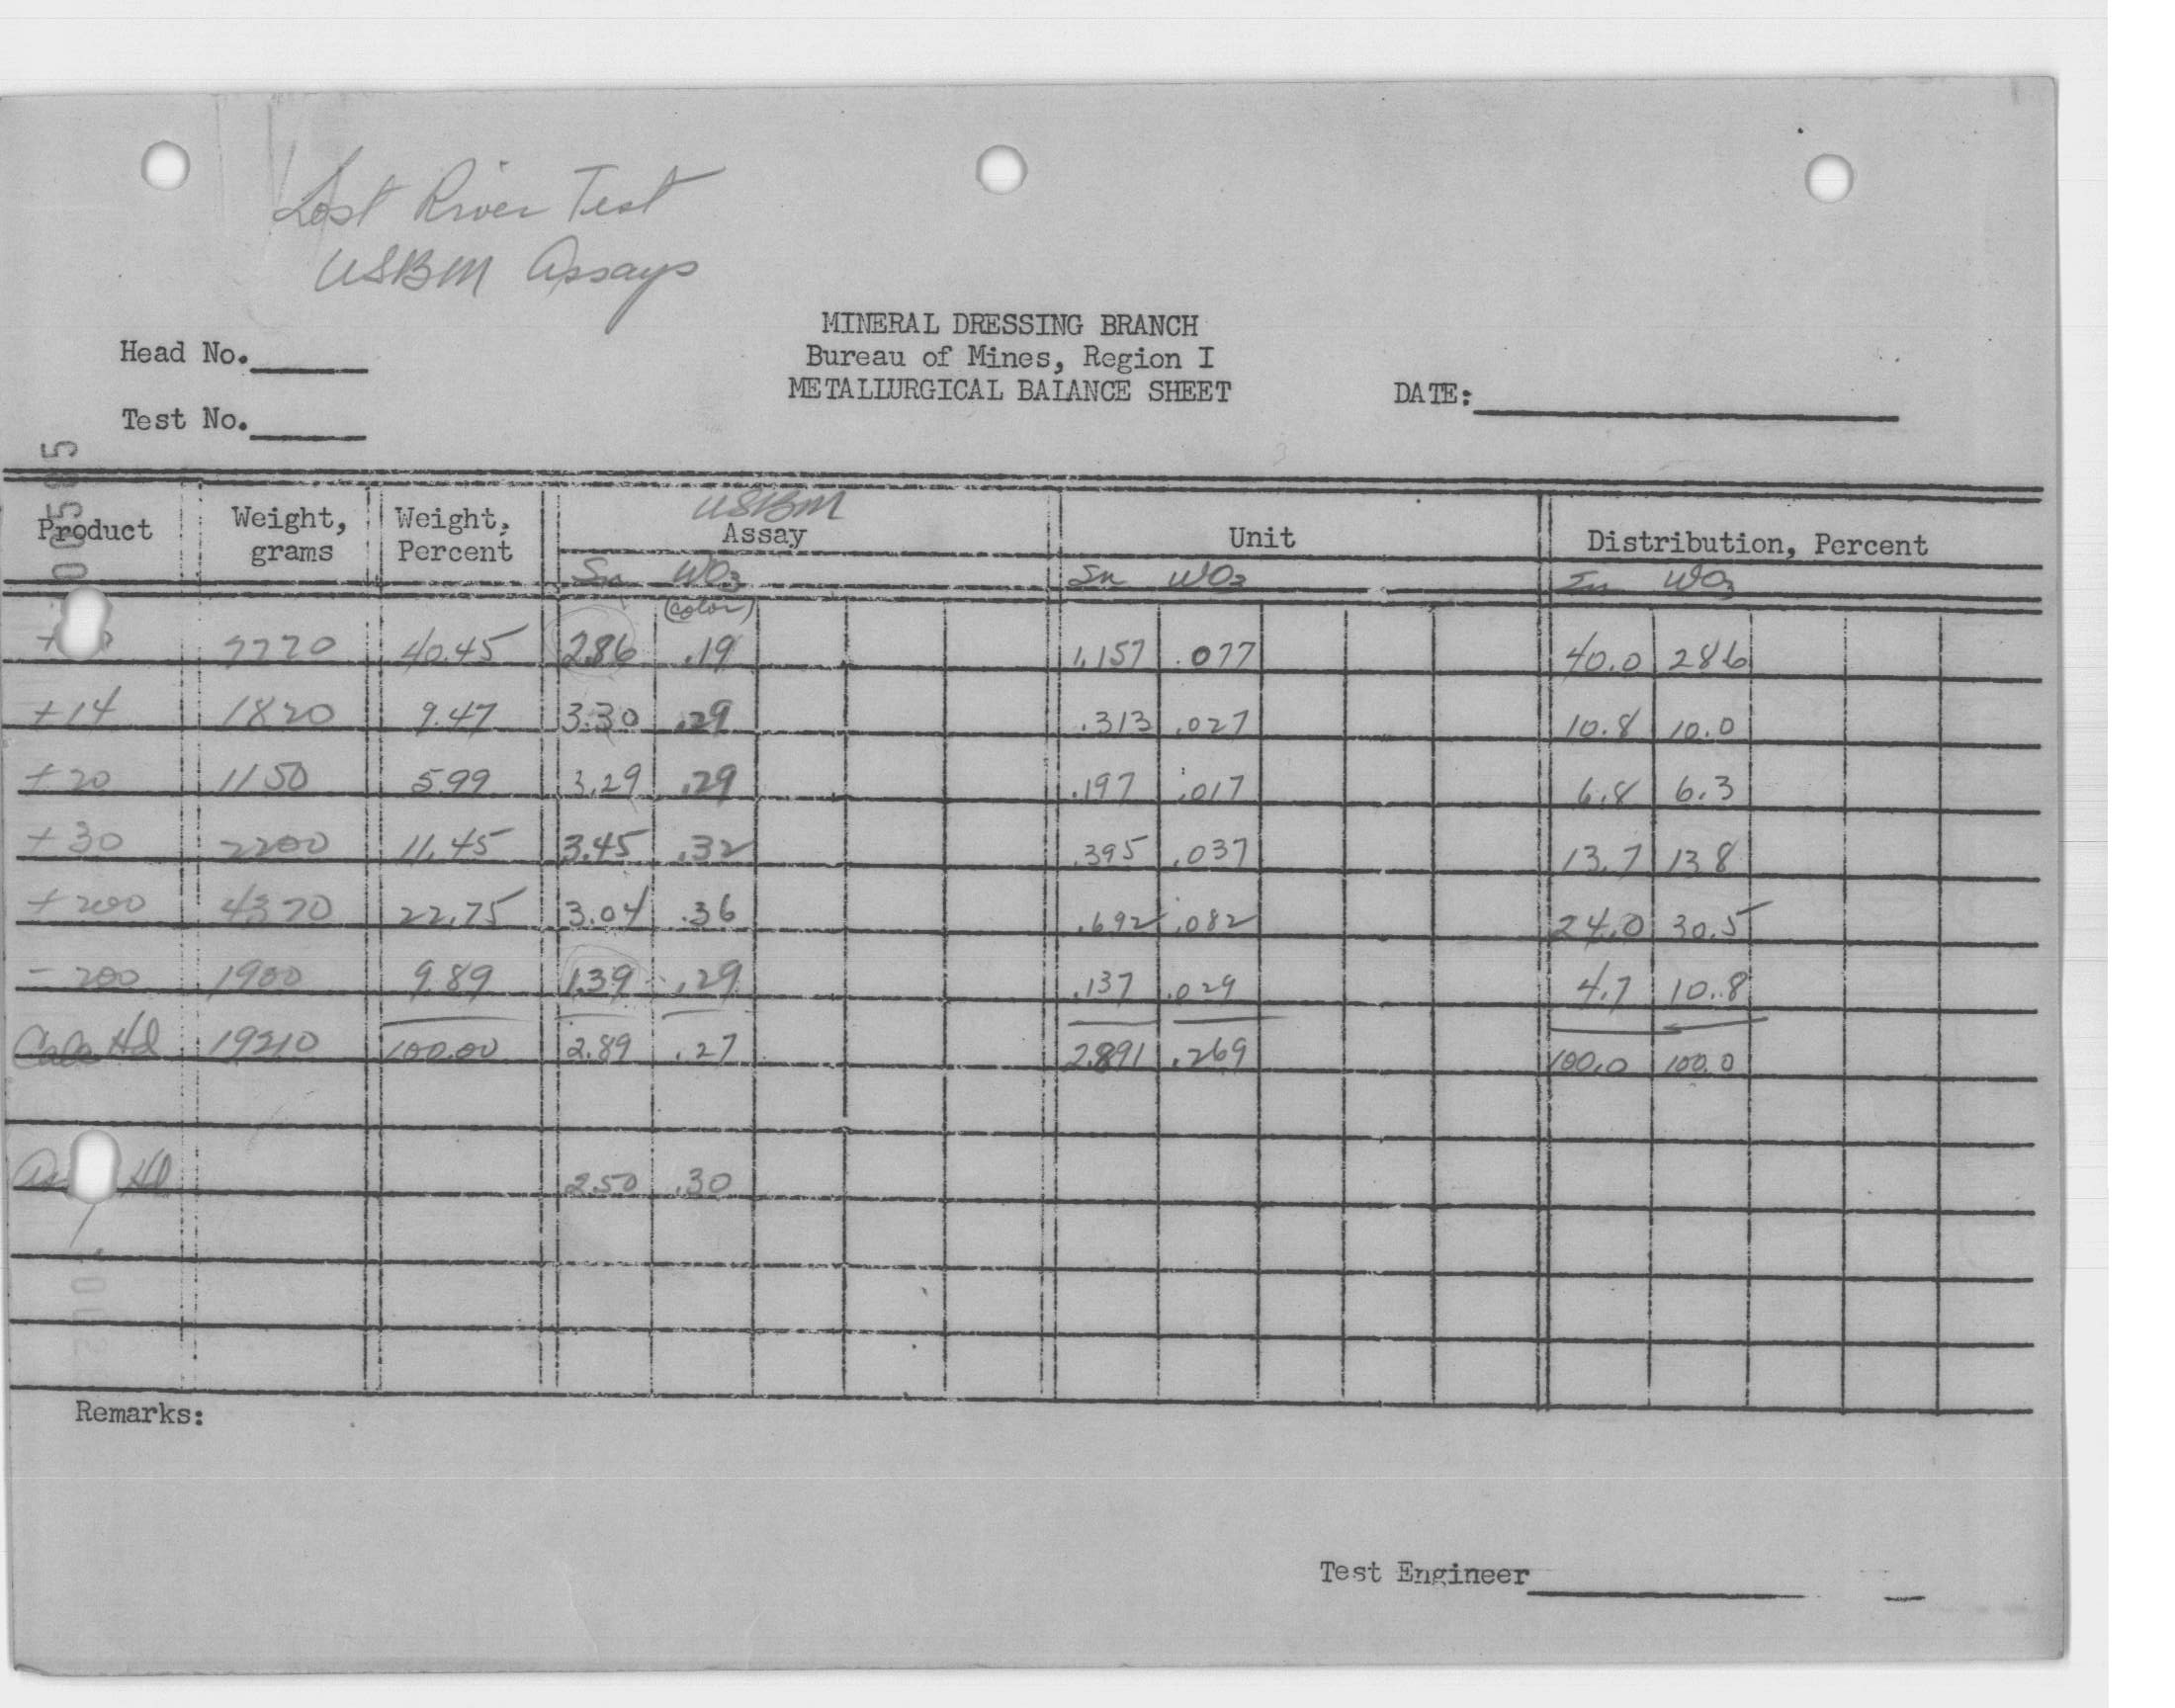 Lost River Test
USBM Assays
MINERAL DRESSING BRANCH
Head No.
Bureau of Mines, Region I
METALLURGICAL BALANCE SHEET
DATE:
Test No.
USBM
Product Weight, grams Weight, Percent Assay Unit Distribution, Percent
Sn WO3 Sn WO3 Sn WO3
(color)
7770 40.45 2.86 .19 1.157 .077 40.0 28.6
+14 1820 9.47 3.30 .29 .313 .027 10.8 10.0
+20 1150 5.99 3.29 .29 .197 .017 6.8 6.3
+30 2200 11.45 3.45 .32 .395 .037 13.7 13.8
+200 4370 22.75 3.04 .36 .692 .082 24.0 30.5
-200 1900 9.89 1.39 .29 .137 .029 4.7 10.8
Calc Hd 19210 100.00 2.89 .27 2.891 .269 100.0 100.0
Hd 2.50 .30
Remarks:
Test Engineer